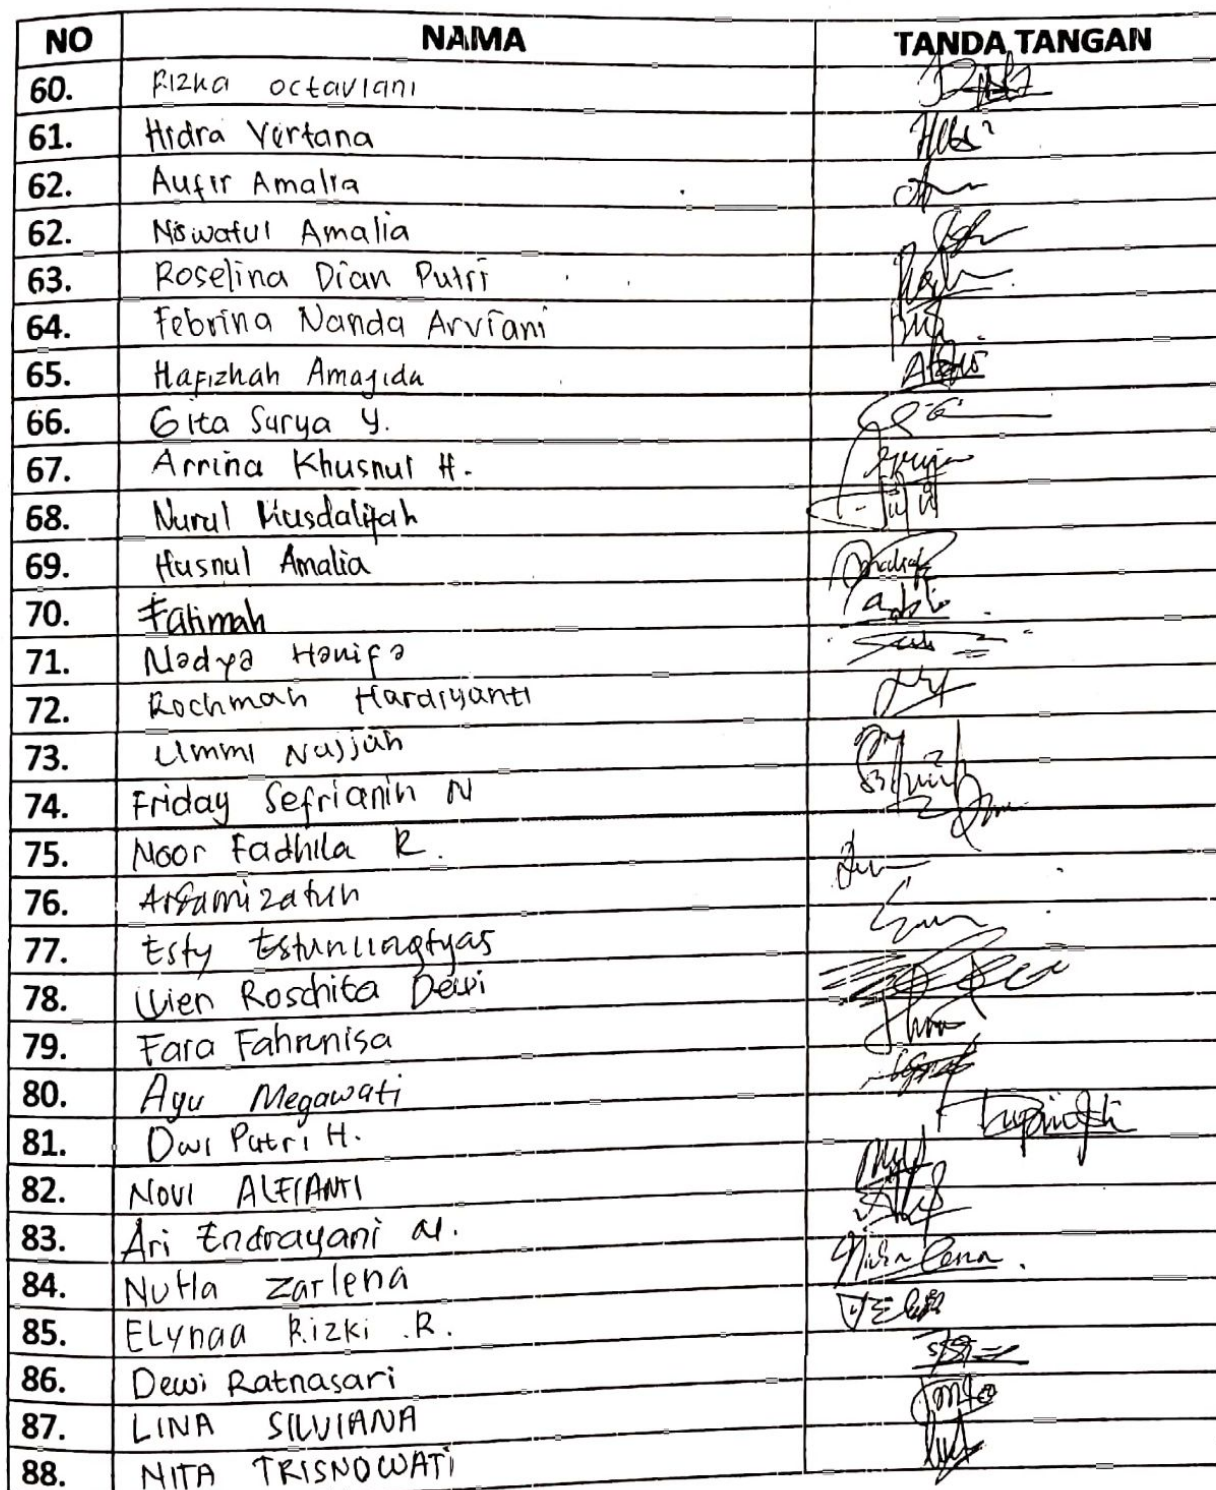 NO NAMA TANDA TANGAN
60. Rizka Octaviani
61. Hidra Yertana
62. Aufir Amalia
62. Niswatul Amalia
63. Roselina Dian Putri
64. Febrina Nanda Arviani
65. Hafizhah Amajida
66. Gita Surya Y.
67. Arrina Khusnul H.
68. Nurul Musdalifah
69. Husnul Amalia
70. Fatimah
71. Nadya Hanifa
72. Rochmah Hardiyanti
73. Ummi Najjah
74. Friday Sefrianin N
75. Noor Fadhila R.
76. Arfamizatun
77. Esty Estuningtyas
78. Wien Roschita Dewi
79. Fara Fahrunisa
80. Ayu Megawati
81. Dwi Putri H.
82. NOVI ALFIANTI
83. Ari Endrayani
84. Zarlena
85. ELynaa Rizki .R.
86. Dewi Ratnasari
87. LINA SILVIANA
88. NITA TRISNOWATI